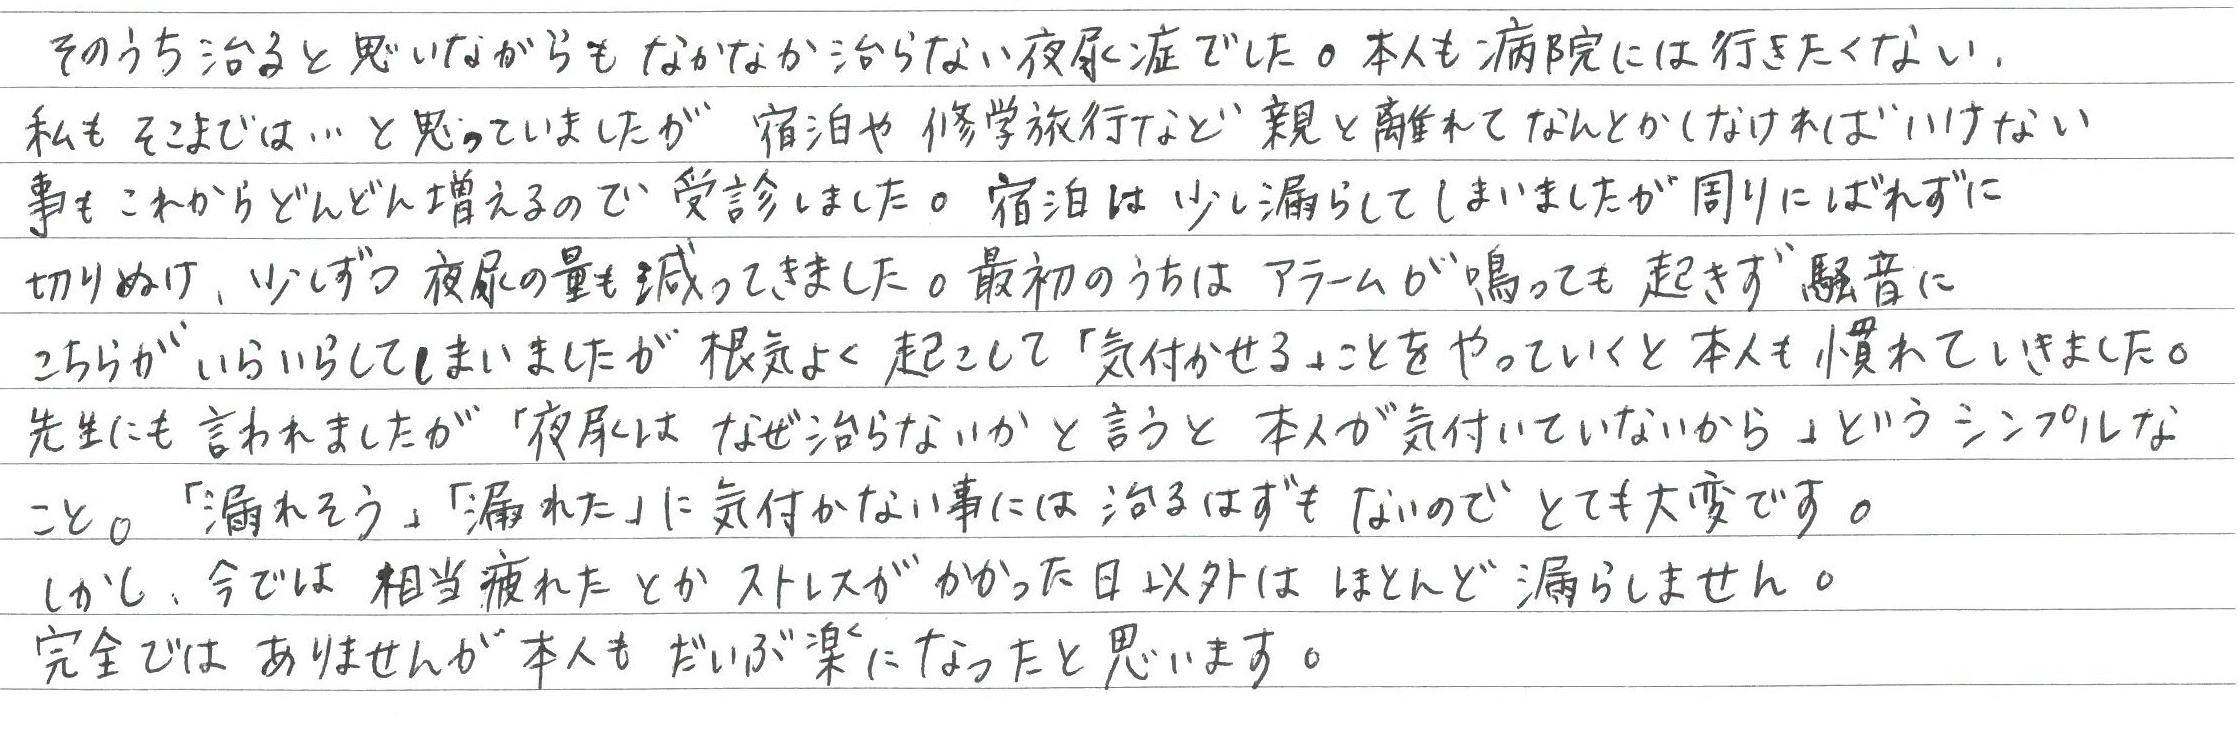 そのうち治ると思いながらもなかなか治らない夜尿症でした。本人も病院には行きたくない、
私もそこまでは…と思っていましたが 宿泊や修学旅行など親と離れてなんとかしなければいけない
事もこれからどんどん増えるので受診しました。宿泊は少し漏らしてしまいましたが周りにばれずに
切りぬけ、少しずつ夜尿の量も減ってきました。最初のうちはアラームが鳴っても起きず騒音に
こちらがいらいらしてしまいましたが根気よく起こして「気付かせる」ことをやっていくと本人も慣れていきました。
先生にも言われましたが「夜尿はなぜ治らないかと言うと本人が気付いていないから」というシンプルな
こと。「漏れそう」「漏れた」に気付かない事には治るはずもないのでとても大変です。
しかし、今では相当疲れたとかストレスがかかった日以外はほとんど漏らしません。
完全ではありませんが本人もだいぶ楽になったと思います。